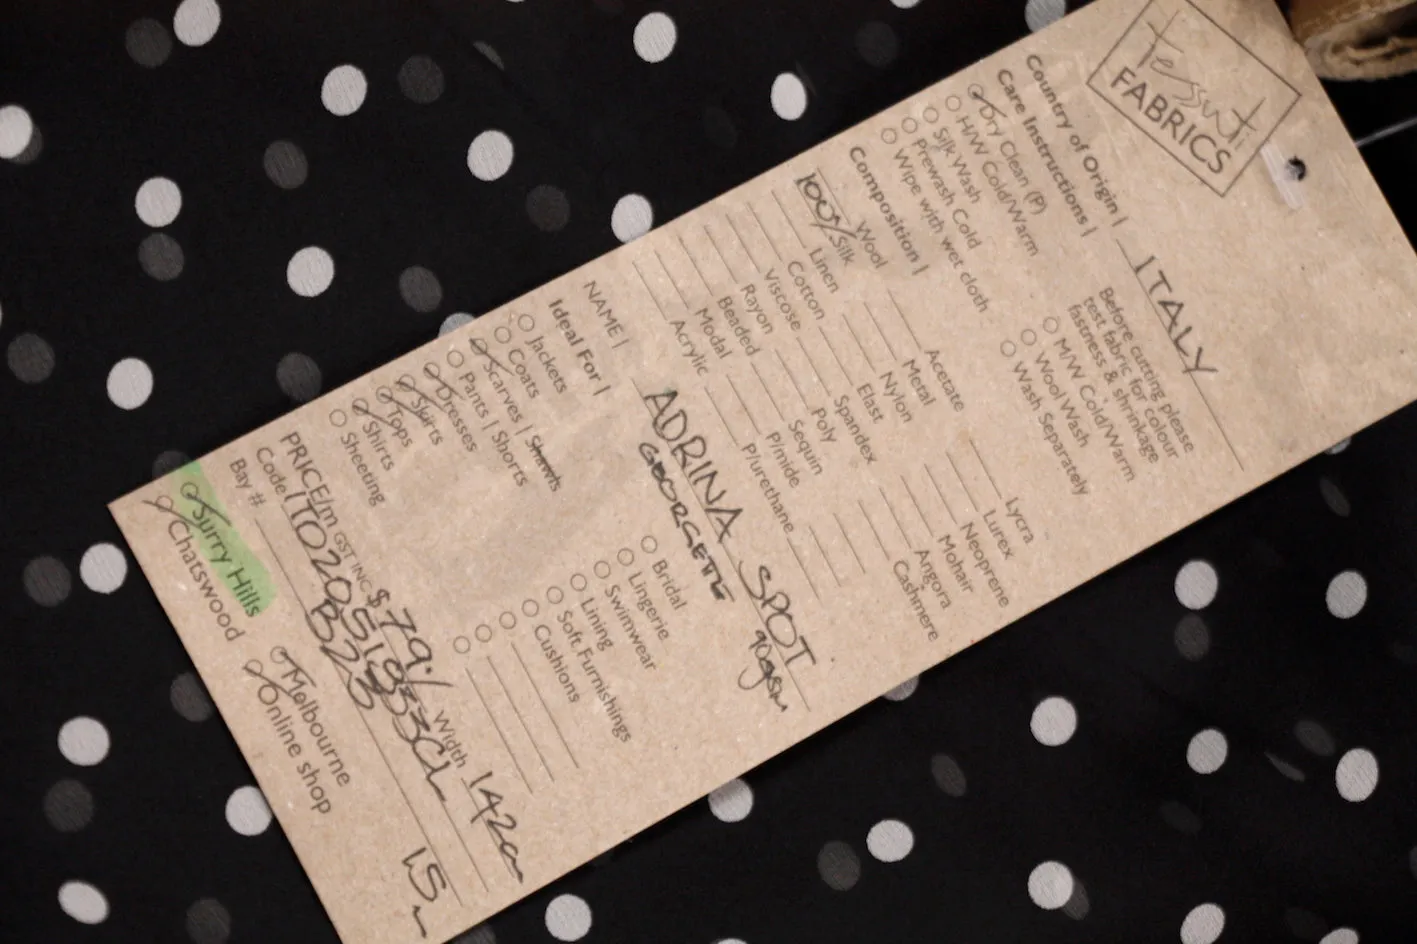 Tessuti
FABRICS
Country of Origin | ITALY
Care Instructions |
Dry Clean (P)
H/W Cold/Warm
Silk Wash
Prewash Cold
Wipe with wet cloth
Before cutting please
test fabric for colour
fastness & shrinkage
M/W Cold/Warm
Wool Wash
Wash Separately
Composition |
Wool
100% Silk
Linen
Cotton
Viscose
Rayon
Beaded
Modal
Acrylic
Acetate
Metal
Nylon
Elast
Spandex
Poly
Sequin
P/mide
P/urethane
Lycra
Lurex
Neoprene
Mohair
Angora
Cashmere
NAME | ADRINA SPOT
GEORGETTE 90gsm
Ideal For |
Jackets
Coats
Scarves | Shawls
Pants | Shorts
Dresses
Skirts
Tops
Shirts
Sheeting
Bridal
Lingerie
Swimwear
Lining
Soft Furnishings
Cushions
PRICE/m GST INC $ 79./ Width 142cm
Code
Bay # B23 1.5m
Surry Hills
Chatswood
Melbourne
Online shop